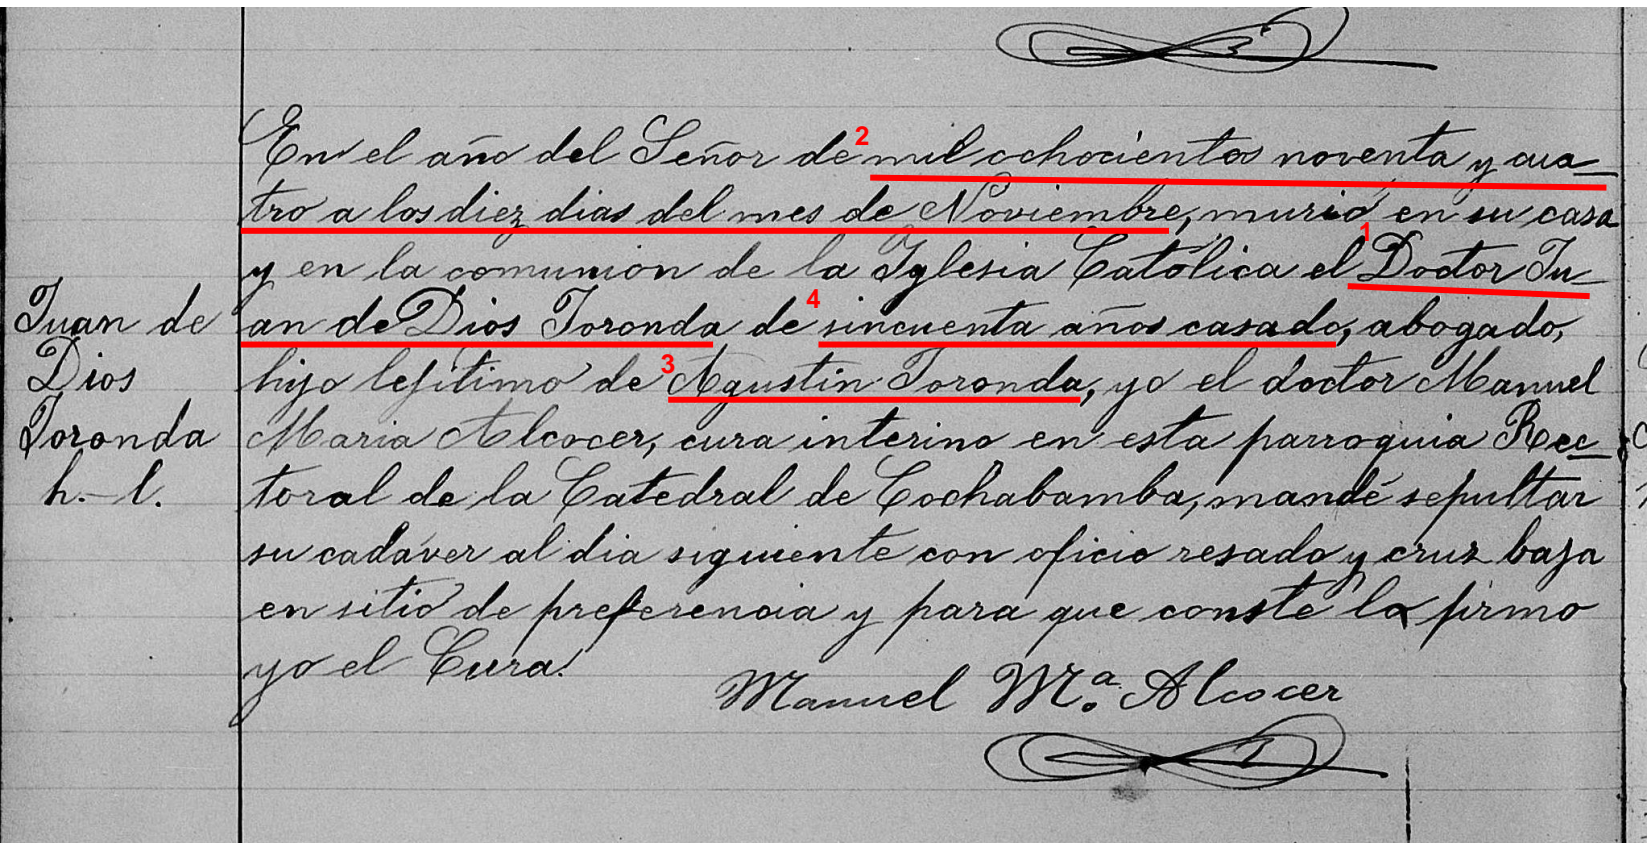 En el año del Señor de 2 mil ochocientos noventa y cua_
tro a los diez dias del mes de Noviembre, murió en su casa
y en la comunion de la Iglesia Católica el 1 Doctor Ju_
Juan de an de Dios Toronda, de 4 sincuenta años casado, abogado,
Dios hijo lejítimo de 3 Agustin Toronda, yo el doctor Manuel
Toronda Maria Alcocer, cura interino en esta parroquia Rec_
h.-l. toral de la Catedral de Cochabamba, mandé sepultar
su cadáver al dia siguiente con oficio resado y cruz baja
en sitio de preferencia y para que conste la firmo
yo el Cura.
Manuel Mª. Alcocer